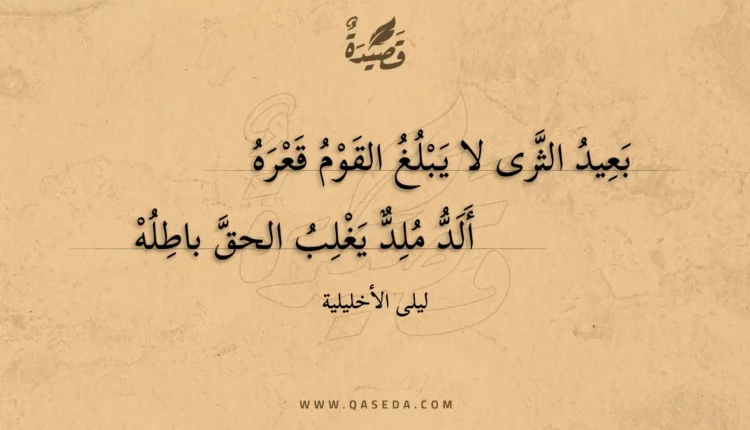 قَصِيْدَةٌ
بَعِيدُ الثَّرى لا يَبْلُغُ القَوْمُ قَعْرَهُ
أَلَدُّ مُلِدٌّ يَغْلِبُ الحقَّ باطِلُهْ
ليلى الأخليلية
WWW.QASEDA.COM